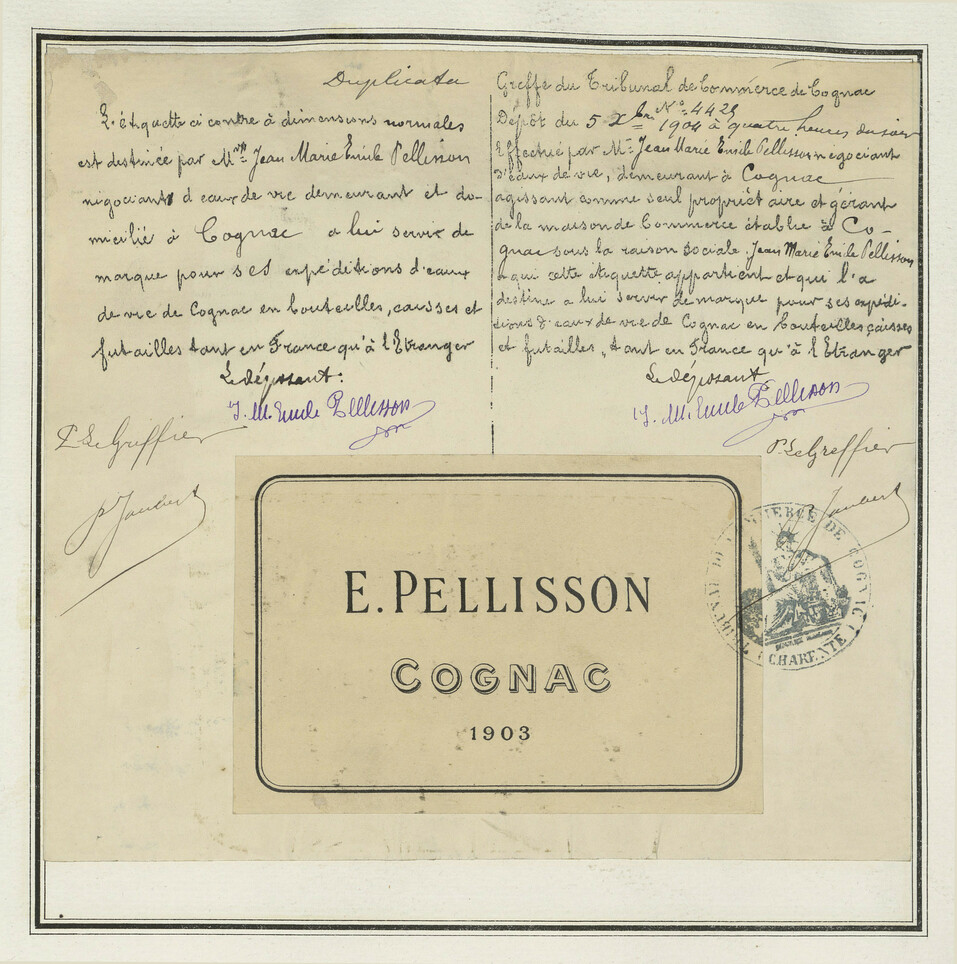 Duplicata
L'étiquette ci contre à dimensions normales
est destinée par Mr Jean Marie Emile Pellisson
négociant d'eaux de vie demeurant et do-
micilié à Cognac a lui servir de
marque pour ses expéditions d'eaux
de vie de Cognac en bouteilles, caisses et
futailles tant en France qu'à l'Etranger
Le déposant:
J. M. Emile Pellisson
P. Le Greffier
Greffe du Tribunal de Commerce de Cognac
Dépôt du 5 Xbre No. 4425
1904 à quatre heures du soir
Effectué par Mr Jean Marie Emile Pellisson négociant
d'eaux de vie, demeurant à Cognac
agissant comme seul propriétaire et gérant
de la maison de Commerce établie à Co-
gnac sous la raison sociale. Jean Marie Emile Pellisson
a qui cette étiquette appartient et qui l'a
destine a lui servir de marque pour ses expédi-
tions d'eaux de vie de Cognac en bouteilles caisses
et futailles, tant en France qu'à l'Etranger
Le déposant
J. M. Emile Pellisson
P. Le Greffier
E. PELLISSON
COGNAC
1903
TRIBUNAL DE COMMERCE DE COGNAC
(CHARENTE)